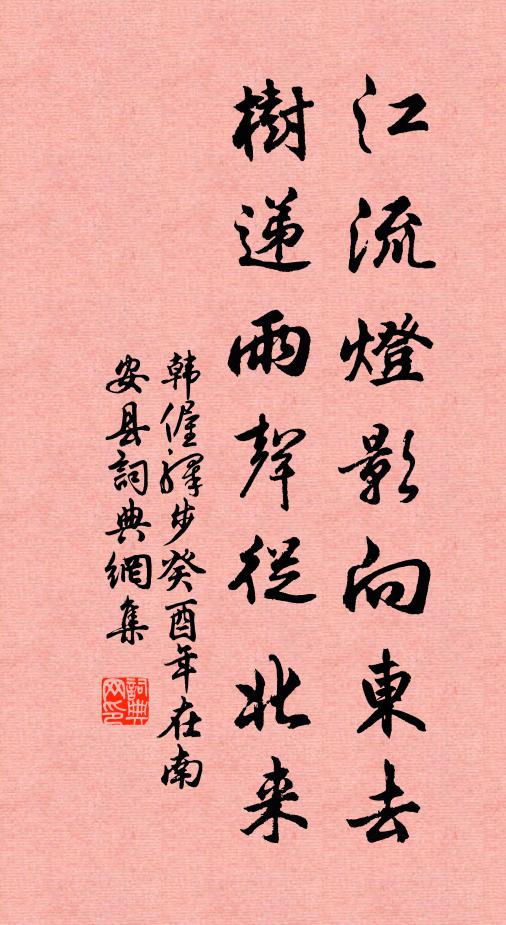 江流燈影向東去
樹遞雨聲從北来
韩偓驛步癸酉年在南
安县詞典網集
詞典網印